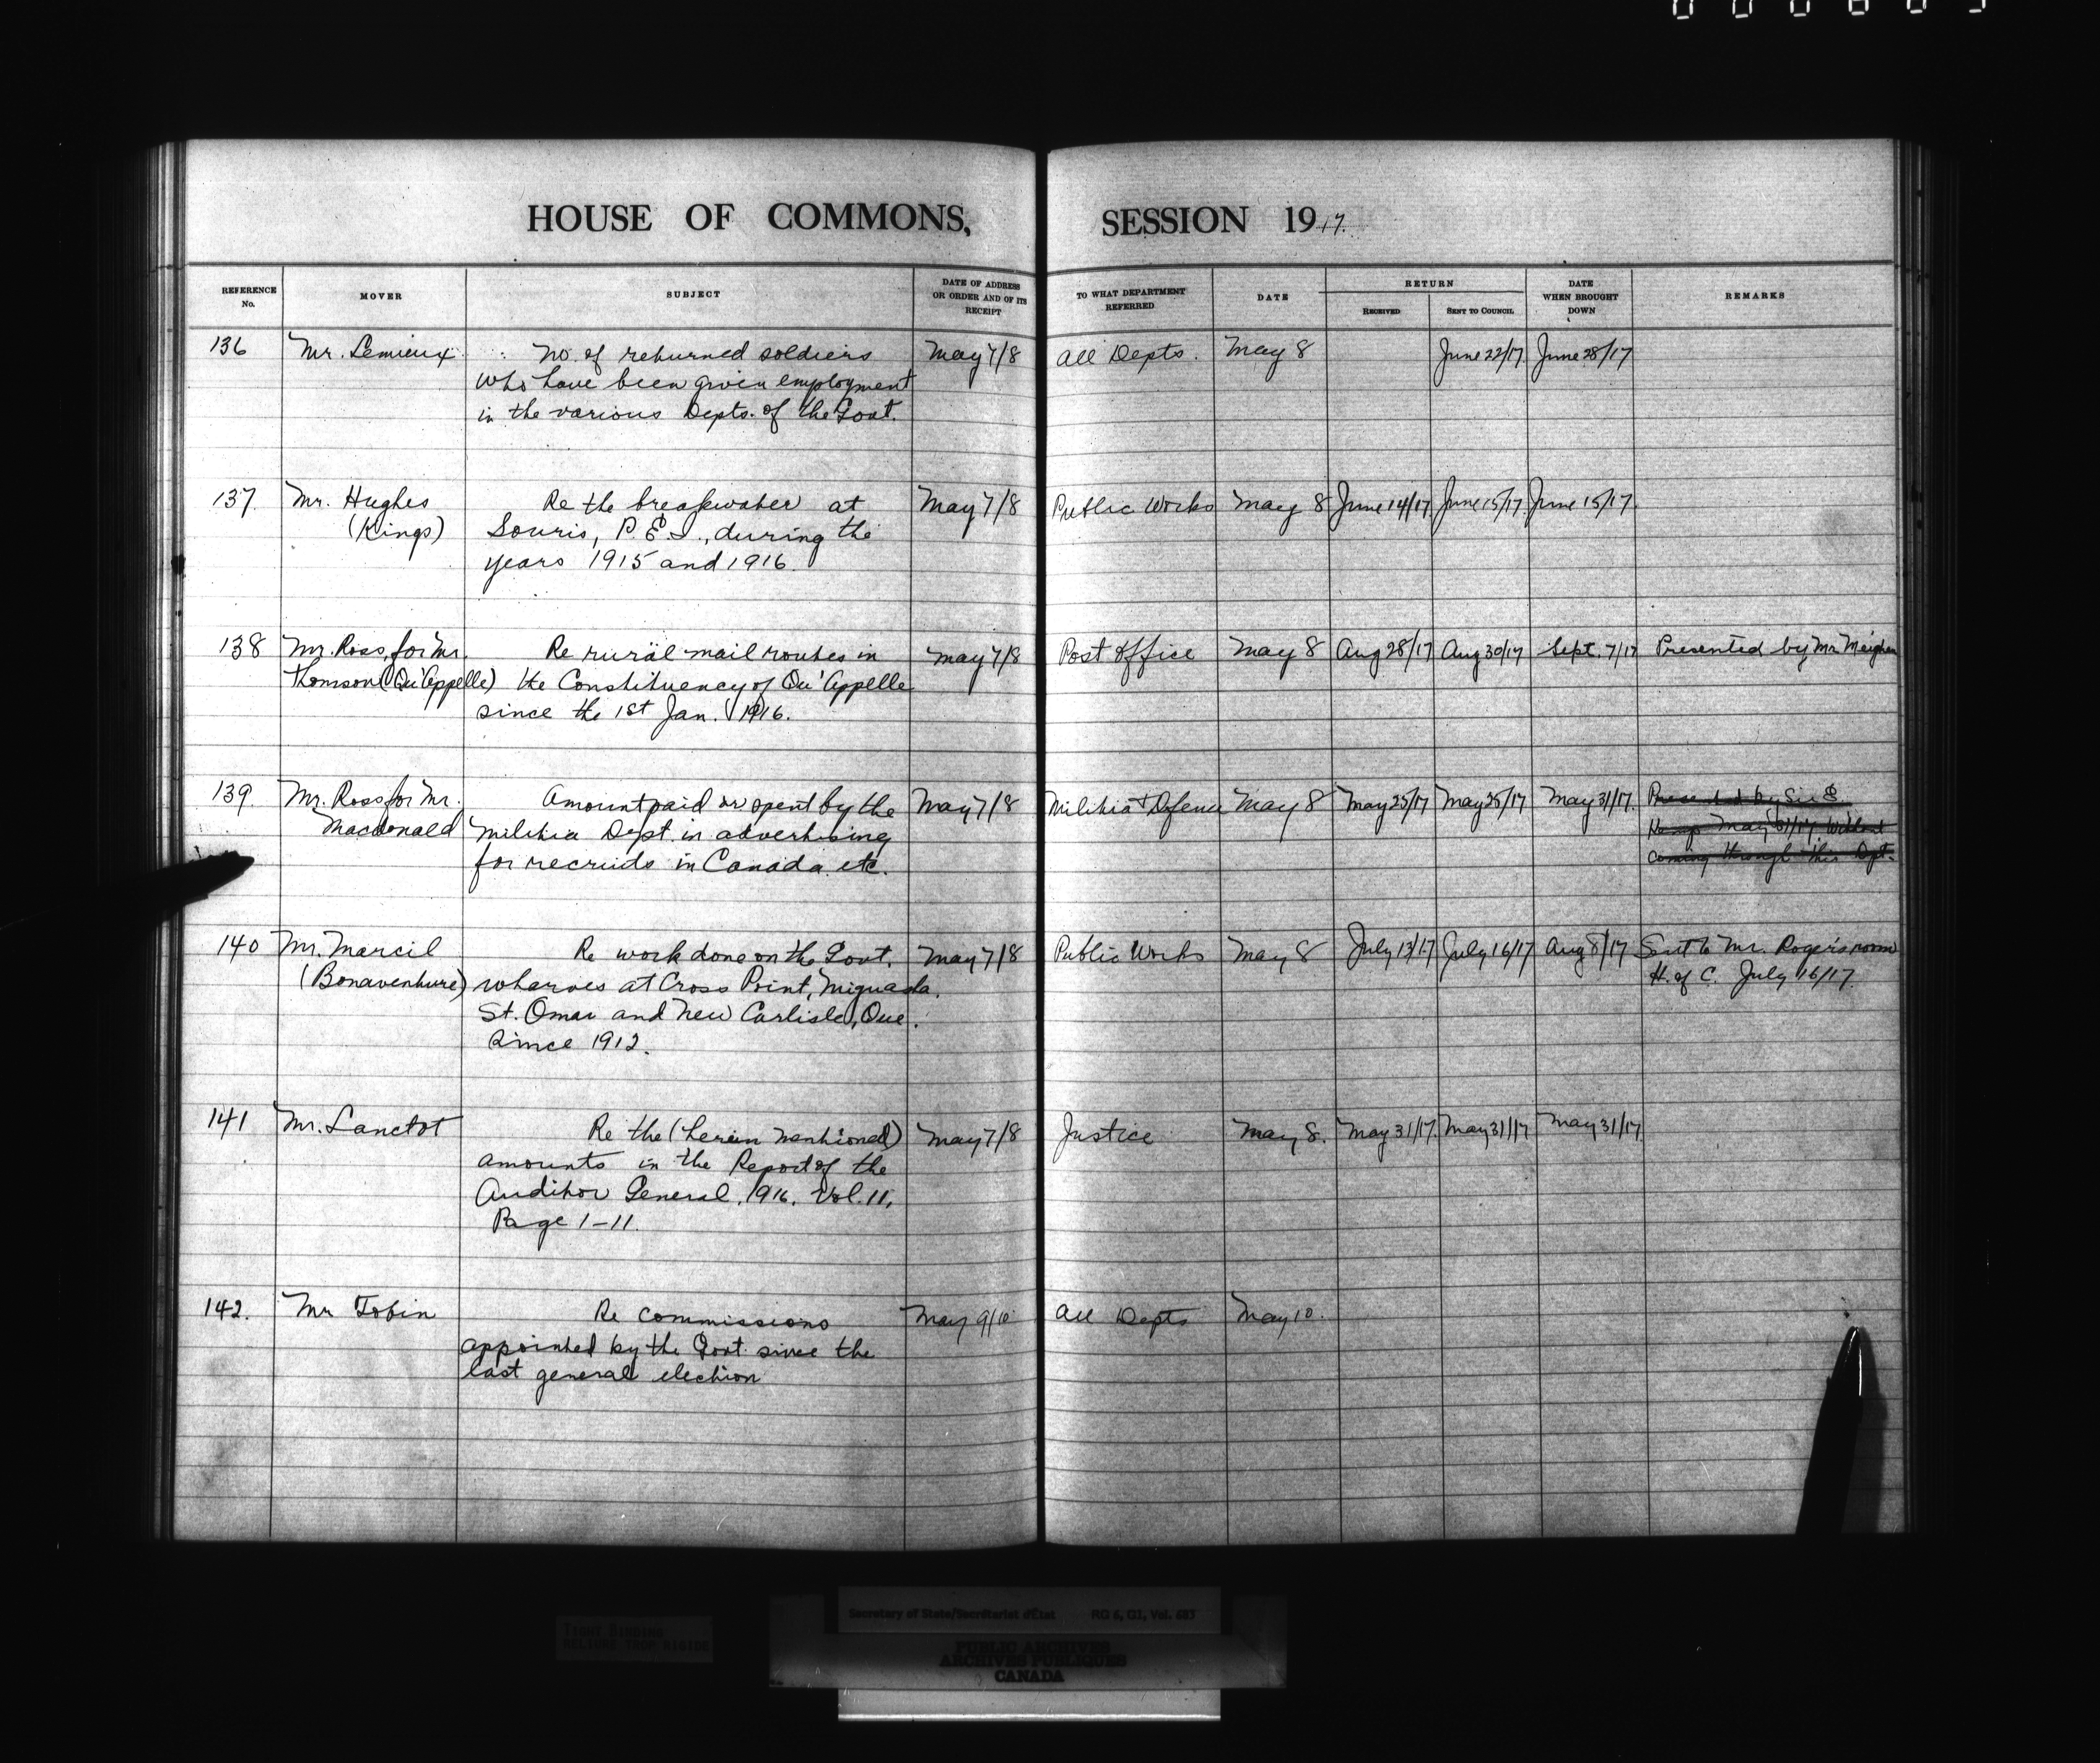 HOUSE OF COMMONS, SESSION 1917.
REFERENCE No.
MOVER
SUBJECT
DATE OF ADDRESS OR ORDER AND OF ITS RECEIPT
TO WHAT DEPARTMENT REFERRED
DATE
RETURN
RECEIVED
SENT TO COUNCIL
DATE WHEN BROUGHT DOWN
REMARKS
136 Mr. Lemieux No. of returned soldiers May 7/8 All Depts. May 8 June 22/17 June 28/17
who have been given employment
in the various Depts. of the Govt.
137. Mr. Hughes Re the breakwater at May 7/8 Public Works May 8 June 14/17 June 15/17 June 15/17
(Kings) Souris, P.E.I., during the
years 1915 and 1916.
138 Mr. Ross, for Mr. Re rural mail routes in May 7/8 Post Office May 8 Aug 28/17 Aug 30/17 Sept. 7/17 Presented by Mr. Meighen
Thomson (Qu'Appelle) the Constituency of Qu'Appelle
since the 1st Jan. 1916.
139. Mr. Ross for Mr. Amount paid or spent by the May 7/8 Militia & Defence May 8 May 25/17 May 25/17 May 31/17. Presented by Sir E.
Macdonald Militia Dept. in advertising Kemp May 31/17. Without
for recruits in Canada. etc. coming through this Dpt.
140 Mr. Marcil Re work done on the Govt. May 7/8 Public Works May 8 July 13/17 July 16/17 Aug 8/17 Sent to Mr. Roger's room
(Bonaventure) wharves at Cross Point, Miguasha. H. of C. July 16/17.
St. Omar and New Carlisle, Que.
since 1912.
141 Mr. Lanctot Re the (herein mentioned) May 7/8 Justice May 8. May 31/17. May 31/17 May 31/17
amounts in the Report of the
Auditor General, 1916. Vol. 11,
Page 1-11.
142. Mr Tobin Re commissions May 9/10 All Depts May 10.
appointed by the Govt since the
last general election
Secretary of State/Secrétariat d'État RG 6, G1, Vol. 683
TIGHT BINDING
RELIURE TROP RIGIDE
PUBLIC ARCHIVES
ARCHIVES PUBLIQUES
CANADA